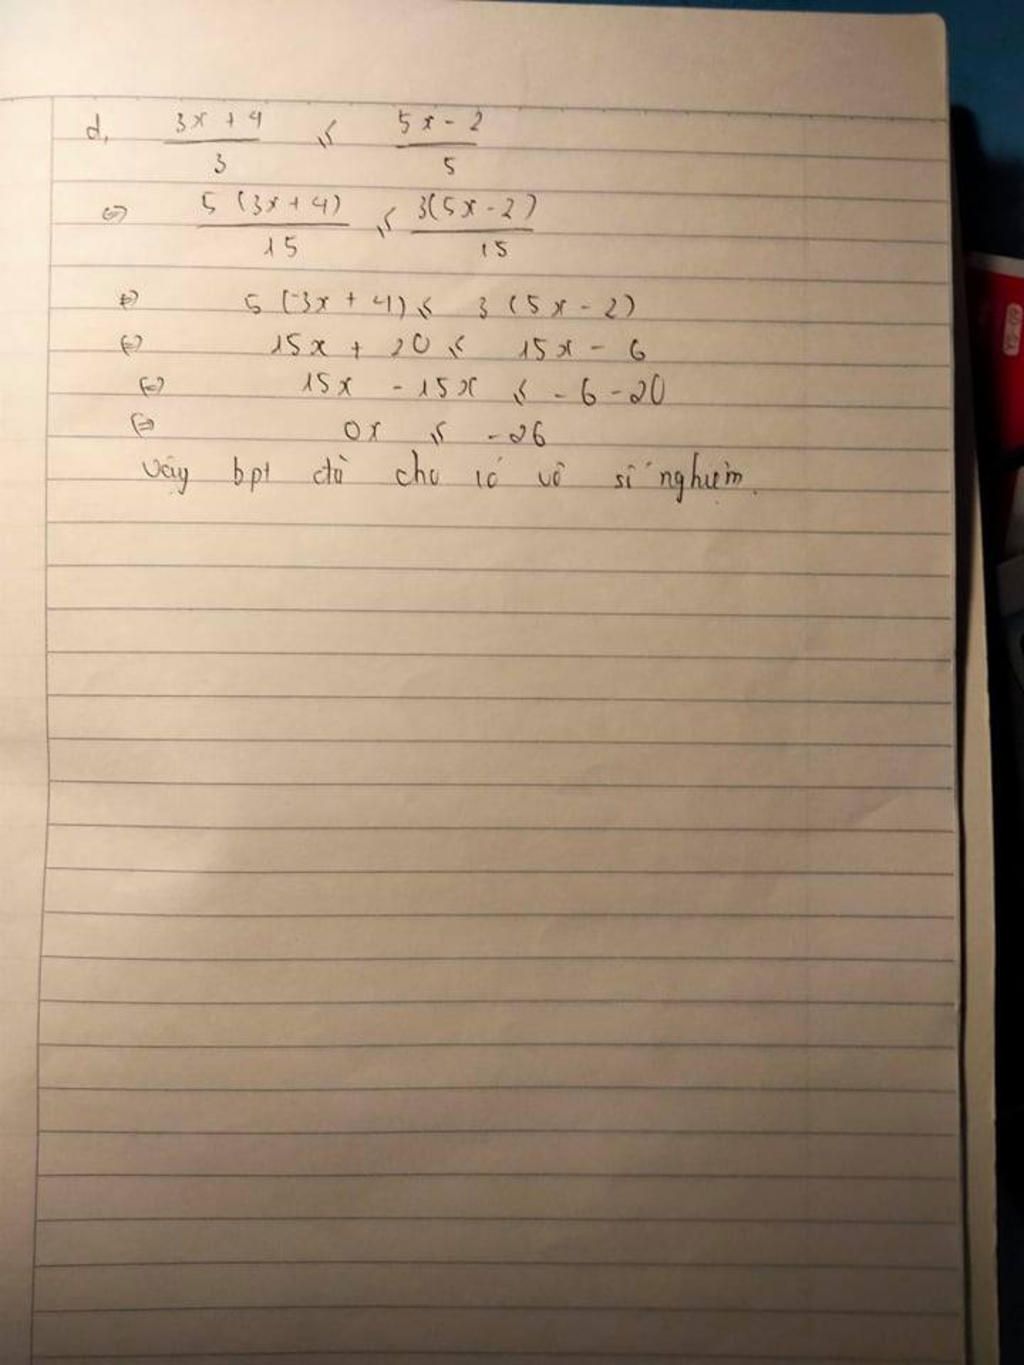 d, \frac{3x + 4}{3} ≤ \frac{5x - 2}{5}
⇔ \frac{5(3x + 4)}{15} ≤ \frac{3(5x - 2)}{15}
⇔ 5(3x + 4) ≤ 3(5x - 2)
⇔ 15x + 20 ≤ 15x - 6
⇔ 15x - 15x ≤ -6 - 20
⇔ 0x ≤ -26
Vậy bpt đã cho có vô số nghiệm.